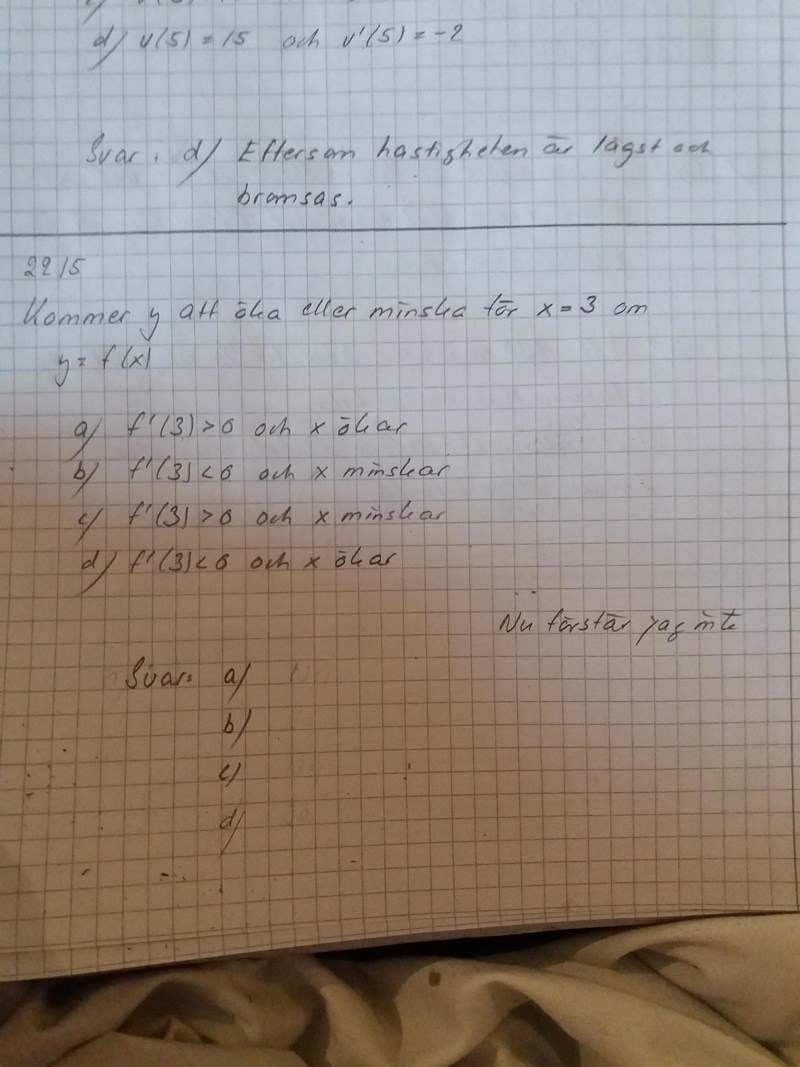 d) v(5) = 15 och v'(5) = -2
Svar. d) Eftersom hastigheten är lägst och
bromsas.
2215
Kommer y att öka eller minska för x = 3 om
y = f(x)
a) f'(3) > 0 och x ökar
b) f'(3) < 0 och x minskar
c) f'(3) > 0 och x minskar
d) f'(3) < 0 och x ökar
Nu förstår jag inte
Svar: a)
b)
c)
d)